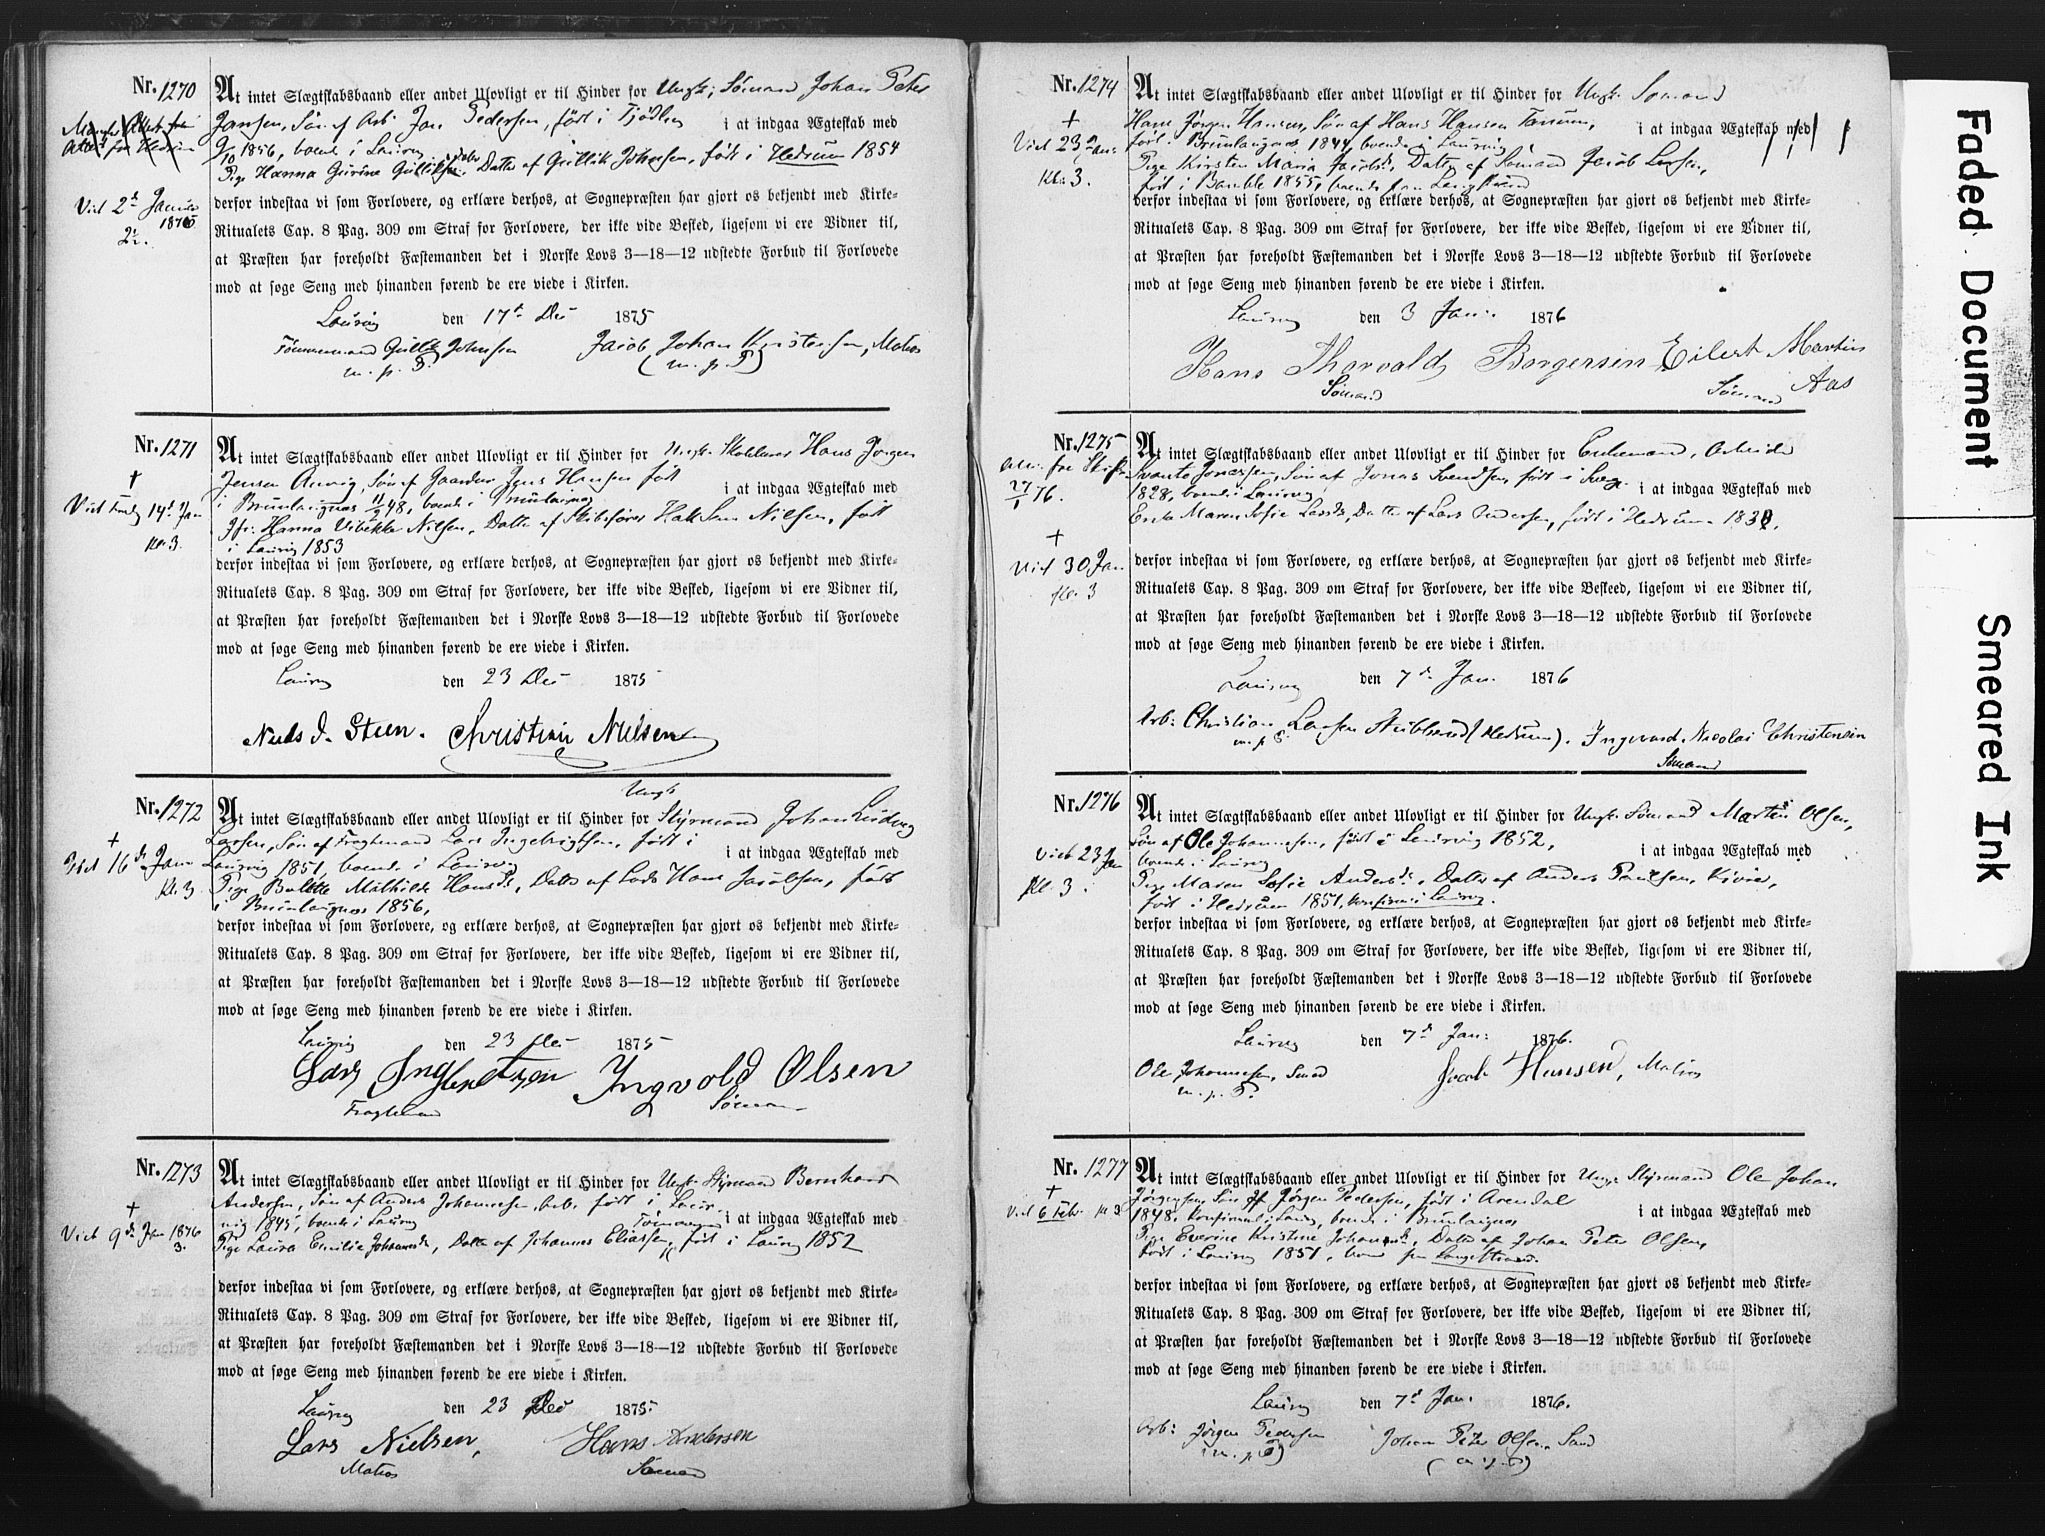 Nr. 1270
At intet Slægtskabsbaand eller andet Ulovligt er til Hinder for Ungk: Sømand Johan Peter
Jansen, Søn af Arb. Jan Pedersen, født i Tjødling i at indgaa Ægteskab med
9/10 1856, boende i Laurvig
Pige Hanna Gurine Gulliksdr., Datter af Gullik Johnsen, født i Hedrum 1854
Viet 2d Januar 1876
derfor indestaa vi som Forlovere, og erklære derhos, at Sognepræsten har gjort os bekjendt med Kirke-
Ritualets Cap. 8 Pag. 309 om Straf for Forlovere, der ikke vide Besked, ligesom vi ere Vidner til,
at Præsten har foreholdt Fæstemanden det i Norske Lovs 3—18—12 udstedte Forbud til Forlovede
mod at søge Seng med hinanden førend de ere viede i Kirken.
Laurvig den 17de Dec 1875
Tømmermand Gullik Johnsen Jacob Johan Kristensen, Matros
m. p. P. (m. p. P)
Nr. 1271
At intet Slægtskabsbaand eller andet Ulovligt er til Hinder for Ungk. Skolelærer Hans Jørgen
Jensen Anvig, Søn af Gaardm. Jens Hansen født i at indgaa Ægteskab med
i Brunlaugnæs 11/5 48, boende i Brunlaugnæs
Jfr. Hanna Vibekke Nilsen, Datter af Skibsfører Nilsen, født
i Laurvig 1853
Viet 14d Jan
Kl. 3
derfor indestaa vi som Forlovere, og erklære derhos, at Sognepræsten har gjort os bekjendt med Kirke-
Ritualets Cap. 8 Pag. 309 om Straf for Forlovere, der ikke vide Besked, ligesom vi ere Vidner til,
at Præsten har foreholdt Fæstemanden det i Norske Lovs 3—18—12 udstedte Forbud til Forlovede
mod at søge Seng med hinanden førend de ere viede i Kirken.
Laurvig den 23 Dec 1875
Niels J. Steen. Christian Nielsen
Nr. 1272
Ungk
At intet Slægtskabsbaand eller andet Ulovligt er til Hinder for Styrmand Johan Ludvig
Larsen, Søn af Fragtmand Lars Ingebrigtsen, født i i at indgaa Ægteskab med
Laurvig 1851, boende i Laurvig
Pige Bolette Mathilde Hansdr, Datter af Lods Hans Jacobsen, født
i Brunlaugnæs 1856,
Viet 16de Jan
Kl. 3
derfor indestaa vi som Forlovere, og erklære derhos, at Sognepræsten har gjort os bekjendt med Kirke-
Ritualets Cap. 8 Pag. 309 om Straf for Forlovere, der ikke vide Besked, ligesom vi ere Vidner til,
at Præsten har foreholdt Fæstemanden det i Norske Lovs 3—18—12 udstedte Forbud til Forlovede
mod at søge Seng med hinanden førend de ere viede i Kirken.
Laurvig den 23 Dec 1875
Lars Ingebretsen Ingvold Olsen
Fragtmand Sømand
Nr. 1273
At intet Slægtskabsbaand eller andet Ulovligt er til Hinder for Ungk. Styrmand Bernhard
Andersen, Søn af Anders Johannesen, Arb. født i Laur-
vig 1845, boende i Laurvig i at indgaa Ægteskab med
Pige Laura Emilie Johannesdr, Datter af Johannes Eliassen, født i Laurvig 1852
Viet 9de Jan 1876
3.
derfor indestaa vi som Forlovere, og erklære derhos, at Sognepræsten har gjort os bekjendt med Kirke-
Ritualets Cap. 8 Pag. 309 om Straf for Forlovere, der ikke vide Besked, ligesom vi ere Vidner til,
at Præsten har foreholdt Fæstemanden det i Norske Lovs 3—18—12 udstedte Forbud til Forlovede
mod at søge Seng med hinanden førend de ere viede i Kirken.
Laurvig den 23 Dec 1875
Lars Nielsen, Hans Andersen
Matros Sømand
Nr. 1274
At intet Slægtskabsbaand eller andet Ulovligt er til Hinder for Ungk. Sømand
Hans Jørgen Hansen, Søn af Hans Hansen Tanum, i at indgaa Ægteskab med
født i Brunlaugnæs 1844, boende i Laurvig
Pige Kirsten Maria Jacobsdr, Datter af Sømand Jacob Larsen,
født i Bamble 1855, boende paa Langestrand
Viet 23de Jan:
Kl. 3.
derfor indestaa vi som Forlovere, og erklære derhos, at Sognepræsten har gjort os bekjendt med Kirke-
Ritualets Cap. 8 Pag. 309 om Straf for Forlovere, der ikke vide Besked, ligesom vi ere Vidner til,
at Præsten har foreholdt Fæstemanden det i Norske Lovs 3—18—12 udstedte Forbud til Forlovede
mod at søge Seng med hinanden førend de ere viede i Kirken.
Laurvig den 3 Jan. 1876
Hans Thorvald Borgersen Eilert Martin Aas
Sømand Sømand
Nr. 1275
At intet Slægtskabsbaand eller andet Ulovligt er til Hinder for Enkemand, Arbeider
Svante Jonassen, Søn af Jonas Svendsen, født i Sverige i at indgaa Ægteskab med
1828, boende i Laurvig
Enke Maren Sofie Larsdr, Datter af Lars Andersen, født i Hedrum 1830,
27/1 76.
Viet 30 Jan.
Kl. 3
derfor indestaa vi som Forlovere, og erklære derhos, at Sognepræsten har gjort os bekjendt med Kirke-
Ritualets Cap. 8 Pag. 309 om Straf for Forlovere, der ikke vide Besked, ligesom vi ere Vidner til,
at Præsten har foreholdt Fæstemanden det i Norske Lovs 3—18—12 udstedte Forbud til Forlovede
mod at søge Seng med hinanden førend de ere viede i Kirken.
Laurvig den 7d Jan. 1876
Arb: Christian Larsen (Hedrum). Ingvard Nicolai Christensen
m. p. P. Sømand
Nr. 1276
At intet Slægtskabsbaand eller andet Ulovligt er til Hinder for Ungk. Sømand Martin Olsen,
Søn af Ole Johannesen, født i Laurvig 1852, i at indgaa Ægteskab med
boende i Laurvig
Pige Maren Sofie Andersdr, Datter af Anders Paulsen, Kirø,
født i Hedrum 1851, konfirm. i Laurvig.
Viet 23 Jan
Kl. 3.
derfor indestaa vi som Forlovere, og erklære derhos, at Sognepræsten har gjort os bekjendt med Kirke-
Ritualets Cap. 8 Pag. 309 om Straf for Forlovere, der ikke vide Besked, ligesom vi ere Vidner til,
at Præsten har foreholdt Fæstemanden det i Norske Lovs 3—18—12 udstedte Forbud til Forlovede
mod at søge Seng med hinanden førend de ere viede i Kirken.
Laurvig den 7d Jan: 1876.
Ole Johannesen, Jacob Hansen, Matros
m. p. P.
Nr. 1277
At intet Slægtskabsbaand eller andet Ulovligt er til Hinder for Ungk Styrmand Ole Johan
Jørgensen, Søn af Jørgen Pedersen, født i Arendal i at indgaa Ægteskab med
1848, konfirmeret i Laurvig, boende i Brunlaugnæs
Pige Everine Kristine Johansdr, Datter af Johan Peter Olsen,
født i Laurvig 1851, boende paa Langestrand.
Viet 6 Feb. Kl 3
derfor indestaa vi som Forlovere, og erklære derhos, at Sognepræsten har gjort os bekjendt med Kirke-
Ritualets Cap. 8 Pag. 309 om Straf for Forlovere, der ikke vide Besked, ligesom vi ere Vidner til,
at Præsten har foreholdt Fæstemanden det i Norske Lovs 3—18—12 udstedte Forbud til Forlovede
mod at søge Seng med hinanden førend de ere viede i Kirken.
Laurvig den 7d Jan. 1876.
Arb: Jørgen Pedersen Johan Peter Olsen
(m. p. P) (m. p. P)
Faded Document
Smeared Ink